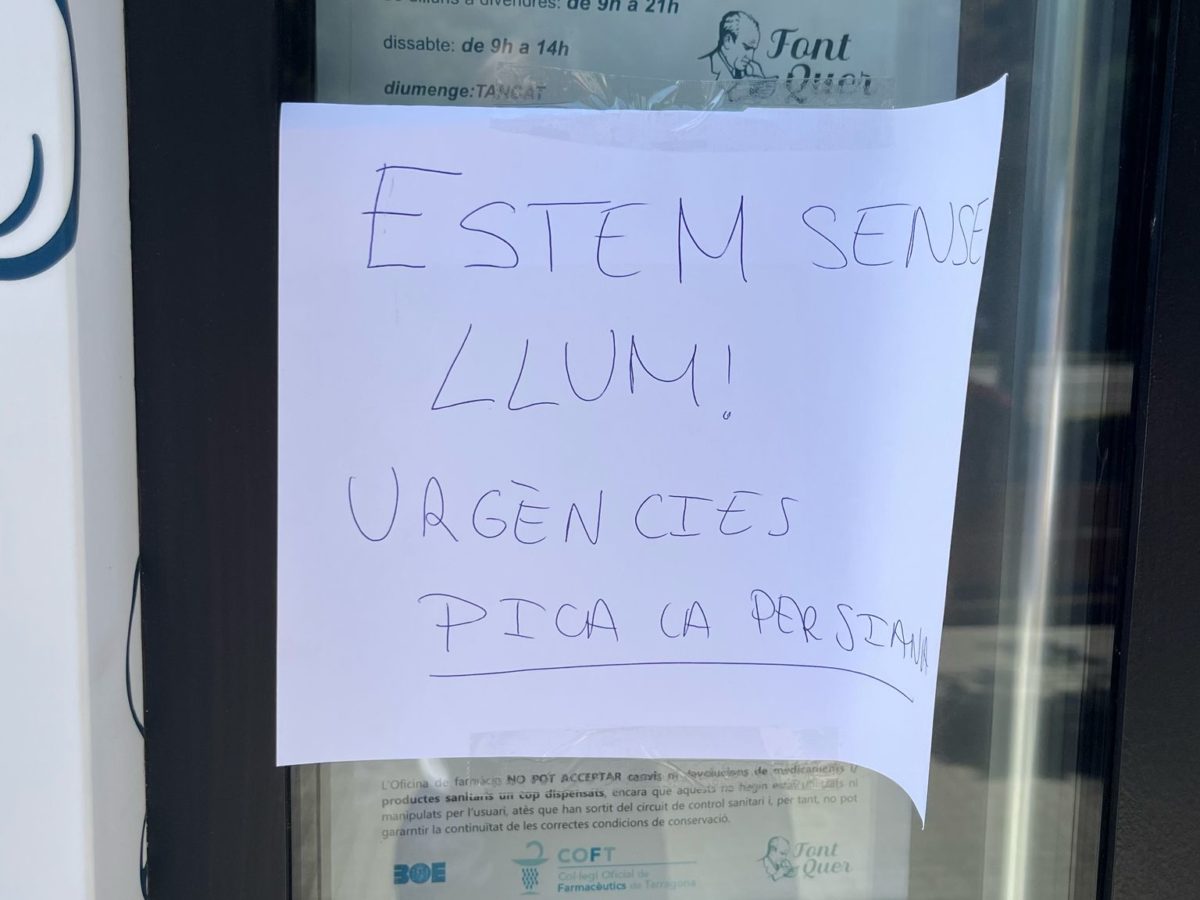 de dilluns a divendres: de 9h a 21h
dissabte: de 9h a 14h
diumenge:TANCAT
Font
Quer
ESTEM SENSE
LLUM!
URGÈNCIES
PICA LA PERSIANA
L'Oficina de farmàcia NO POT ACCEPTAR canvis ni devolucions de medicaments i/
productes sanitaris un cop dispensats, encara que aquests no hagin estat ni
manipulats per l'usuari, atès que han sortit del circuit de control sanitari i, per tant, no pot
garantir la continuïtat de les correctes condicions de conservació.
BOE
COFT
Col·legi Oficial de
Farmacèutics de Tarragona
Font
Quer